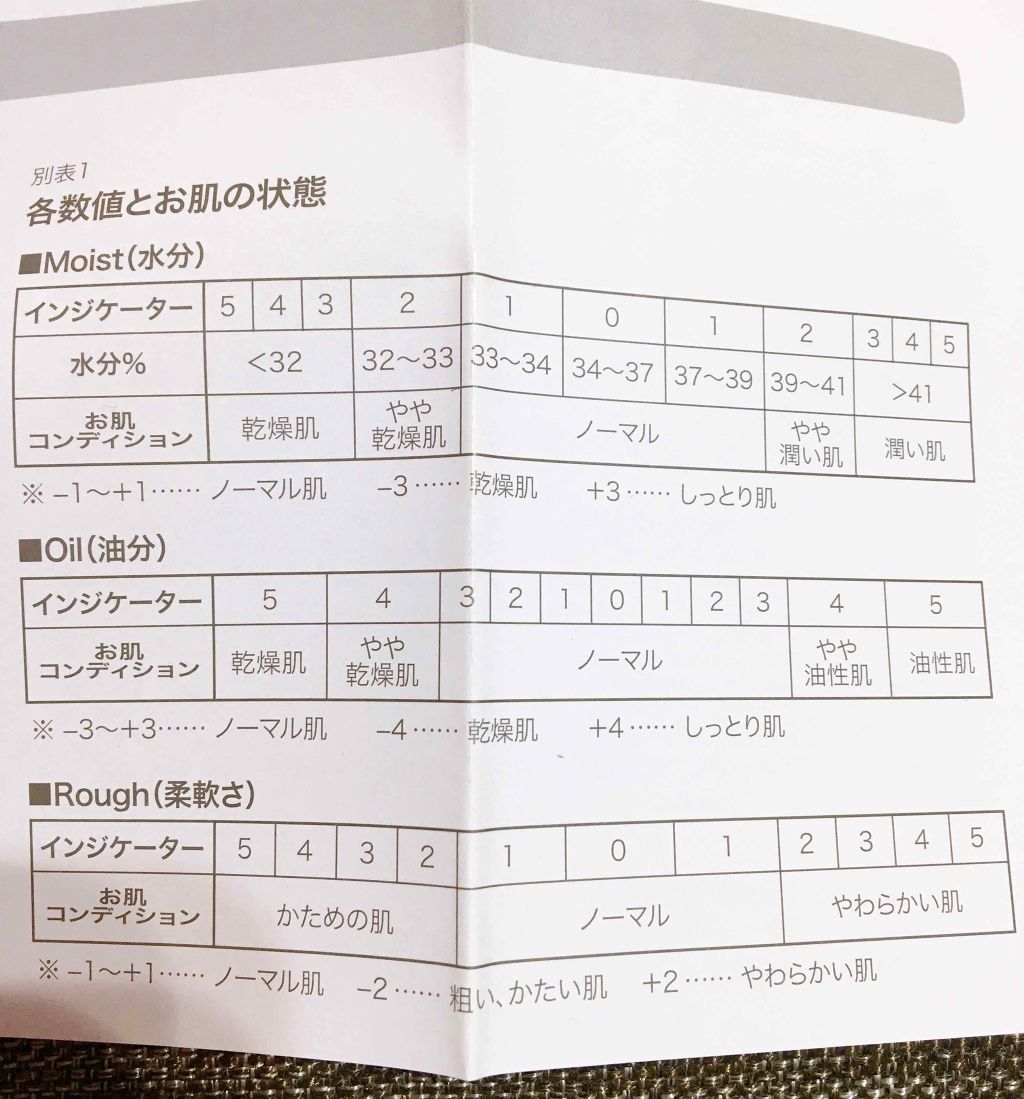 別表1
各数値とお肌の状態
■Moist(水分)
インジケーター 5 4 3 2 1 0 1 2 3 4 5
水分% <32 32〜33 33〜34 34〜37 37〜39 39〜41 >41
お肌コンディション 乾燥肌 やや乾燥肌 ノーマル やや潤い肌 潤い肌
※ −1〜+1…… ノーマル肌 −3…… 乾燥肌 +3…… しっとり肌
■Oil(油分)
インジケーター 5 4 3 2 1 0 1 2 3 4 5
お肌コンディション 乾燥肌 やや乾燥肌 ノーマル やや油性肌 油性肌
※ −3〜+3…… ノーマル肌 −4…… 乾燥肌 +4…… しっとり肌
■Rough(柔軟さ)
インジケーター 5 4 3 2 1 0 1 2 3 4 5
お肌コンディション かための肌 ノーマル やわらかい肌
※ −1〜+1…… ノーマル肌 −2…… 粗い、かたい肌 +2…… やわらかい肌